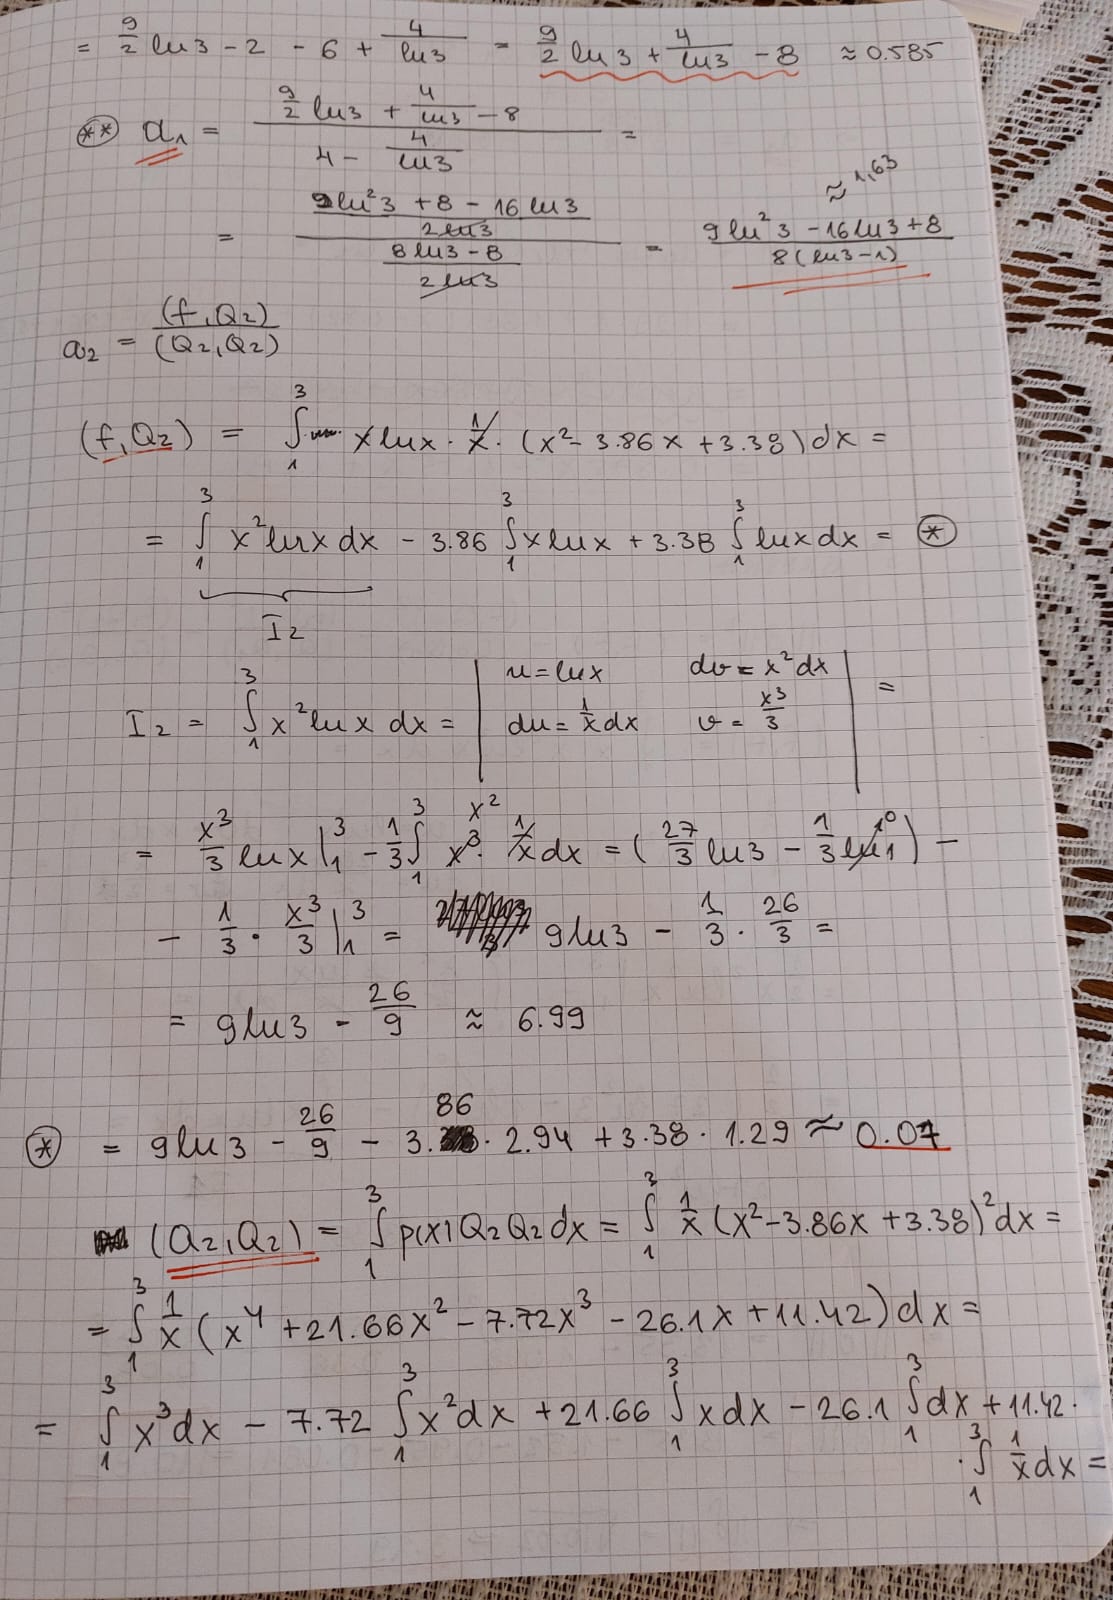 = 9/2 ln3 - 2 - 6 + 4/ln3 = 9/2 ln3 + 4/ln3 - 8 ≈ 0.585
(**) a₁ = (9/2 ln3 + 4/ln3 - 8)/(4 - 4/ln3) =
= ((9ln²3 + 8 - 16ln3)/(2ln3))/((8ln3 - 8)/(2ln3)) = (9ln²3 - 16ln3 + 8)/(8(ln3 - 1)) ≈ 1,63
a₂ = (f,Q₂)/(Q₂,Q₂)
(f,Q₂) = ∫₁³ x lnx · 1/x · (x² - 3.86x + 3.38)dx =
= ∫₁³ x² lnx dx - 3.86 ∫₁³ x lnx + 3.38 ∫₁³ lnx dx = (*)
I₂
I₂ = ∫₁³ x² lnx dx = | u = lnx dv = x²dx | =
du = 1/x dx v = x³/3
= x³/3 lnx |₁³ - 1/3 ∫₁³ x³ x² · 1/x dx = (27/3 ln3 - 1/3 ln1 0) -
- 1/3 · x³/3 |₁³ = 9ln3 - 1/3 · 26/3 =
= 9ln3 - 26/9 ≈ 6.99
(*) = 9ln3 - 26/9 - 3.86 · 2.94 + 3.38 · 1.29 ≈ 0.07
(Q₂,Q₂) = ∫₁³ p(x)Q₂Q₂dx = ∫₁³ 1/x (x² - 3.86x + 3.38)²dx =
= ∫₁³ 1/x (x⁴ + 21.66x² - 7.72x³ - 26.1x + 11.42)dx =
= ∫₁³ x³dx - 7.72 ∫₁³ x²dx + 21.66 ∫₁³ xdx - 26.1 ∫₁³ dx + 11.42 ·
· ∫₁³ 1/x dx =